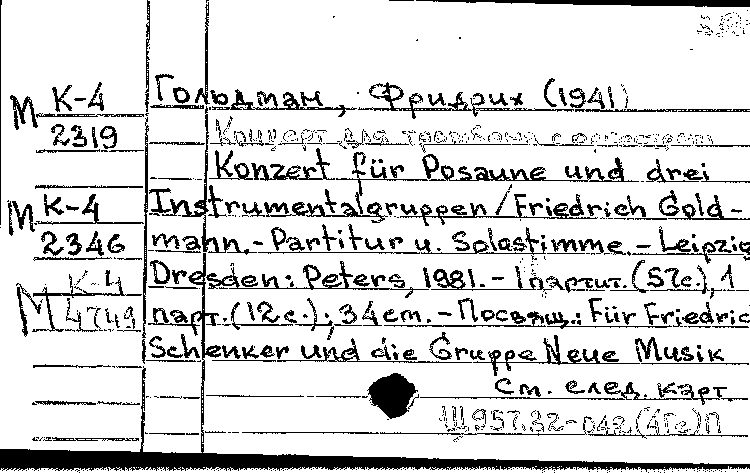 М К-4
2319
М К-4
2346
М К-4
4749
Гольдман, Фридрих (1941)
Концерт для тромбона с оркестром
Konzert für Posaune und drei
Instrumentalgruppen / Friedrich Gold-
mann.- Partitur u. Solostimme.- Leipzig
Dresden: Peters, 1981.- 1 партит. (57с.), 1
парт. (12 с.); 34 cm.- Посвящ.: Für Friedric
Schenker und die Gruppe Neue Musik
См. след. карт.
Щ957.32-042.(4Ге)П